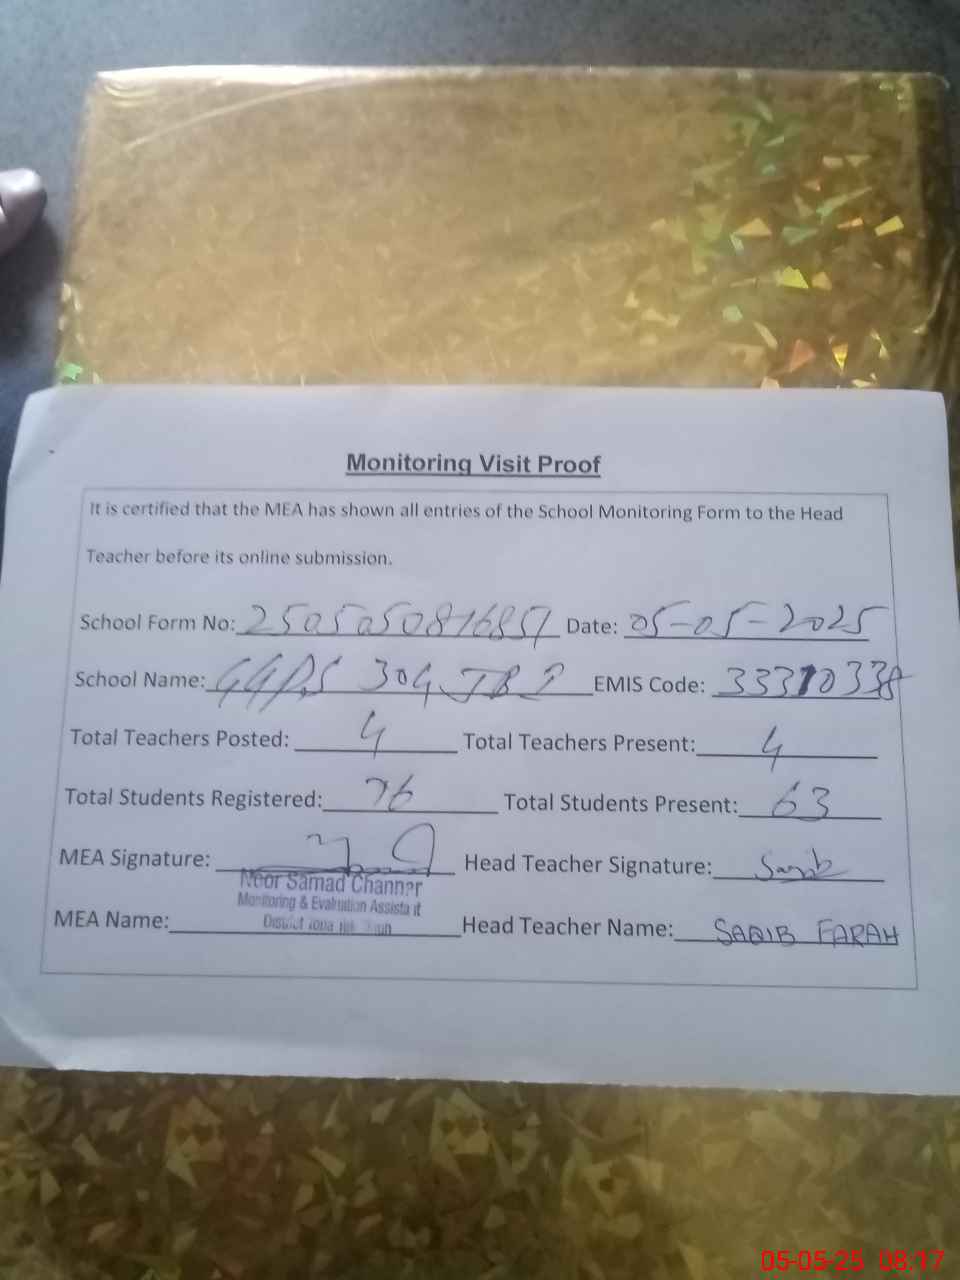 Monitoring Visit Proof
It is certified that the MEA has shown all entries of the School Monitoring Form to the Head
Teacher before its online submission.
School Form No: 2505050816857 Date: 05-05-2025
School Name: GGPS 304 JB EMIS Code: 33310338
Total Teachers Posted: 4 Total Teachers Present: 4
Total Students Registered: 76 Total Students Present: 63
MEA Signature: Head Teacher Signature:
Noor Samad Channar
Monitoring & Evaluation Assistant
District
MEA Name: Head Teacher Name: SAQIB FARAH
05-05-25 08:17